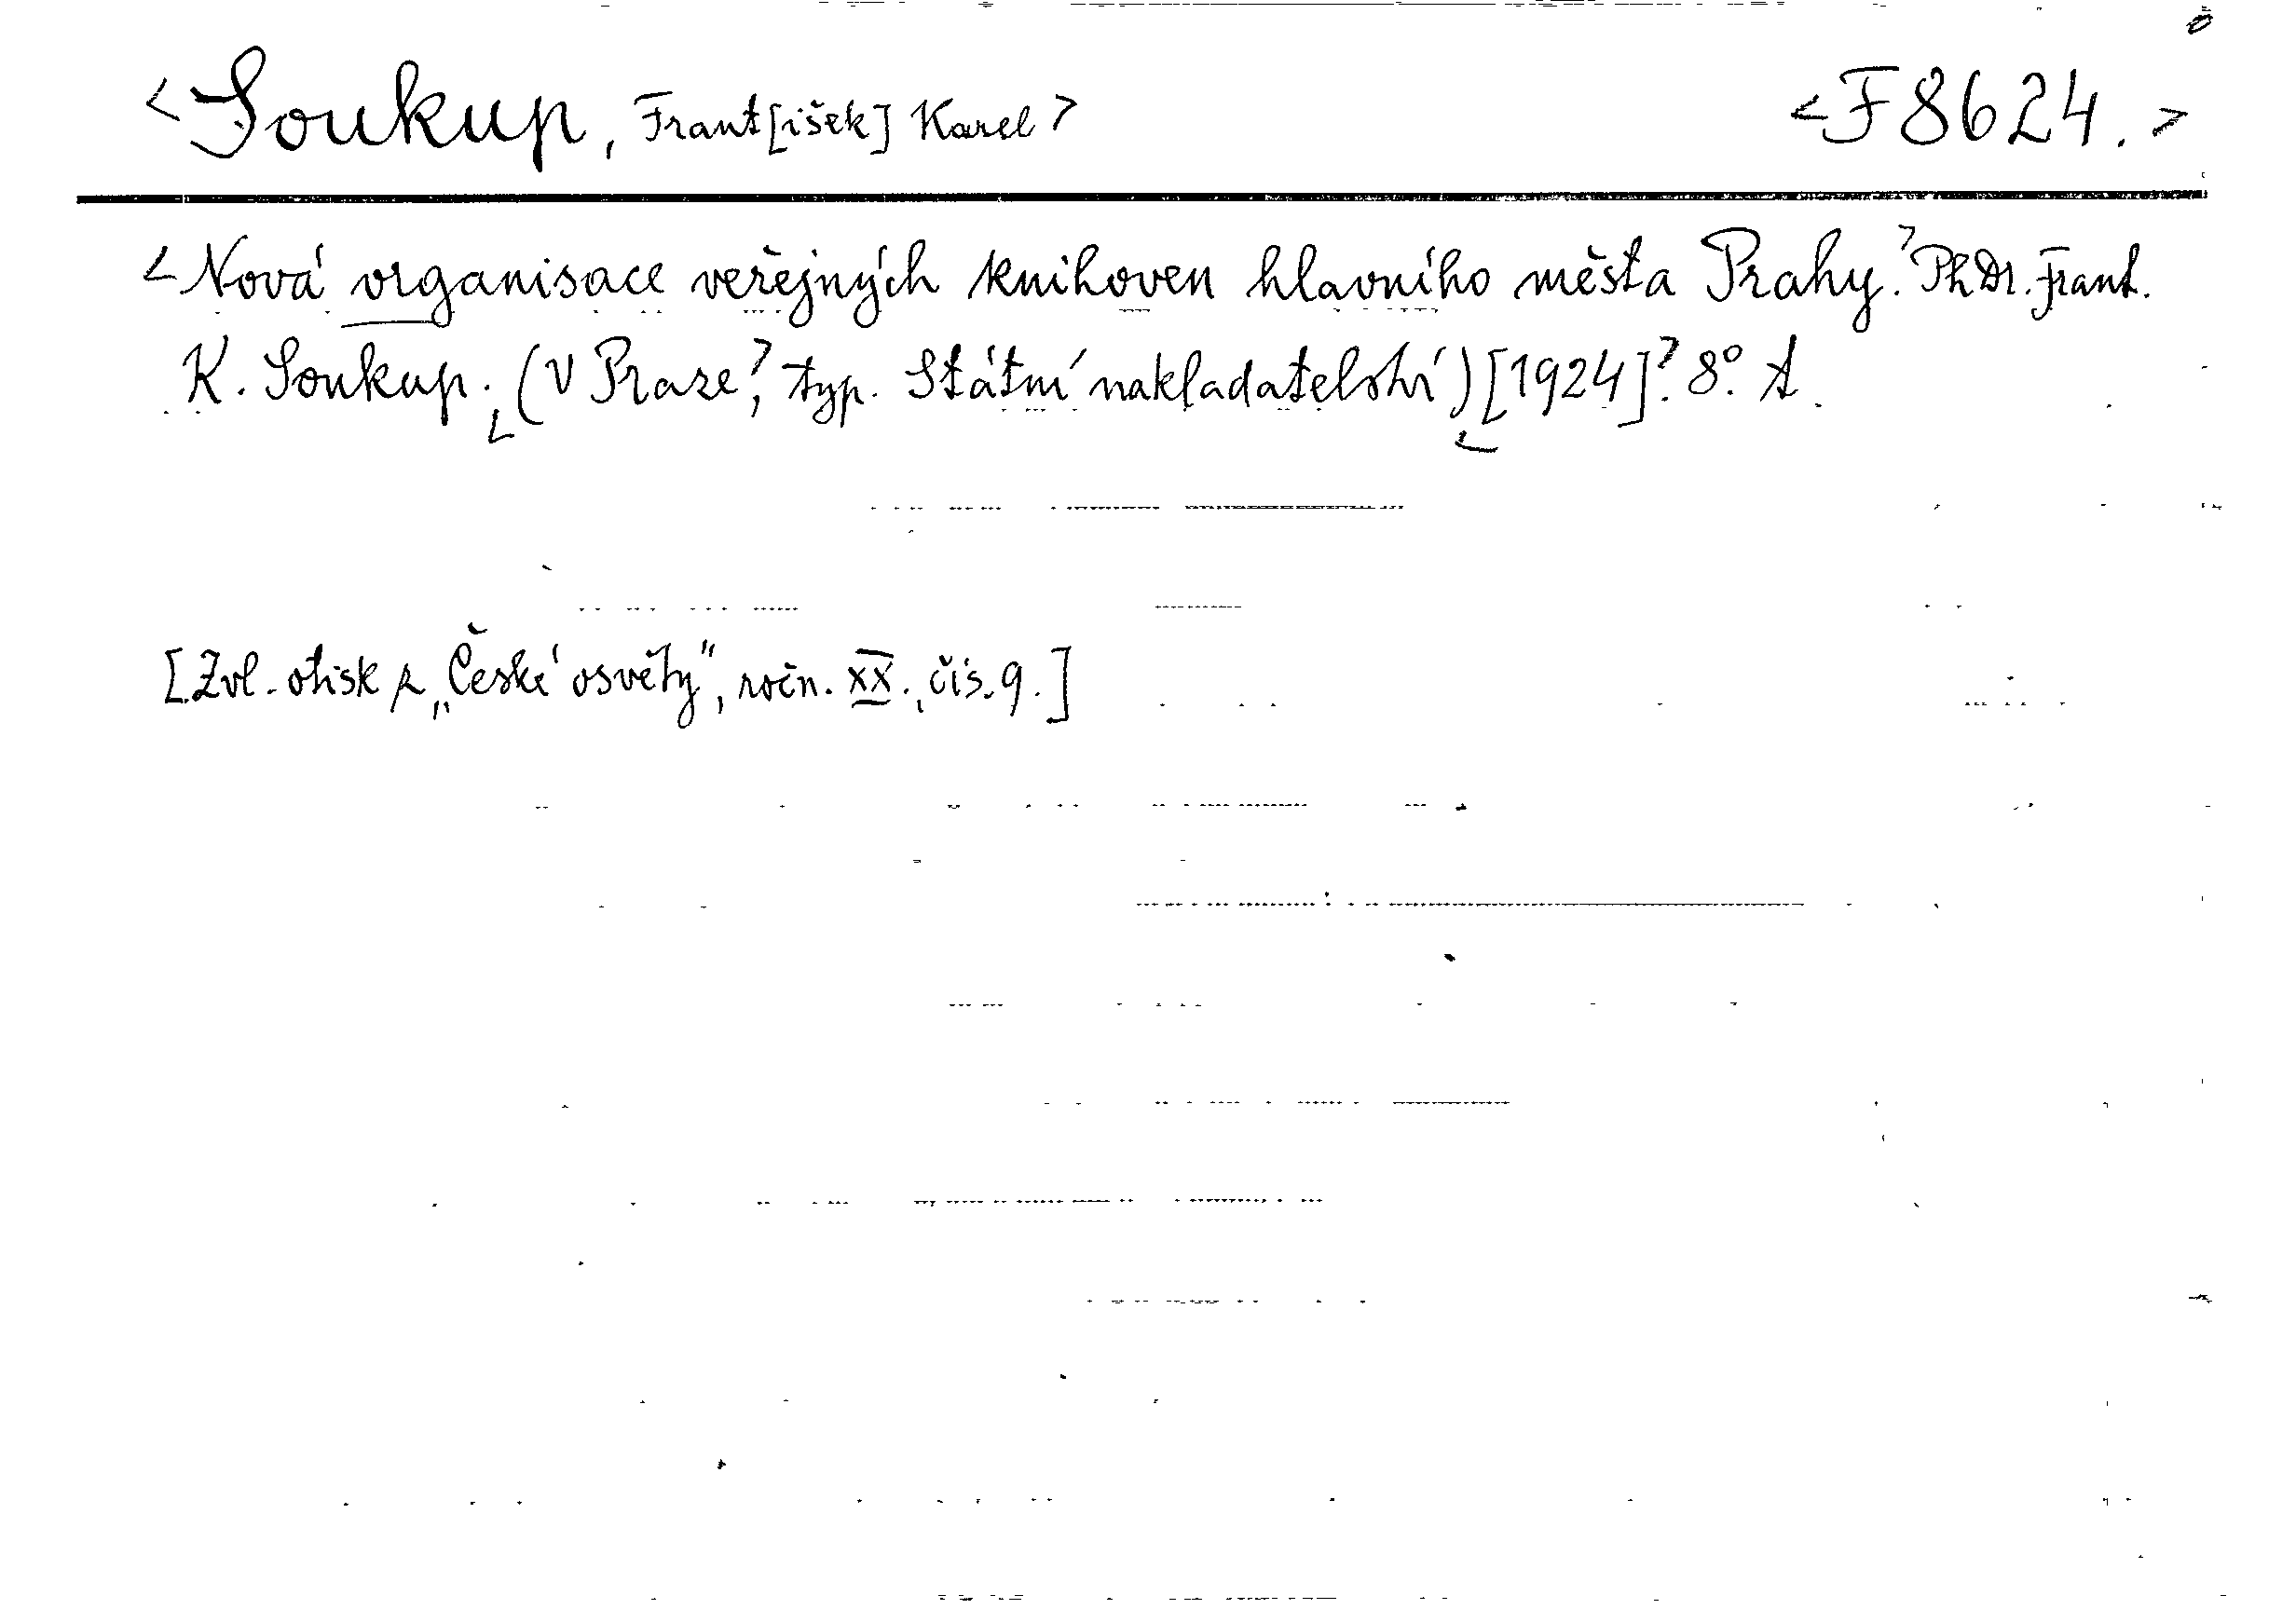 <Soukup, Frant[išek] Karel> <F 8624.>
<Nová organisace veřejných knihoven hlavního města Prahy.> PhDr. Frant.
K. Soukup. <(V Praze>, typ. Státní nakladatelství) <[1924]>. 8°. A
[Zvl. otisk z „České osvěty", ročn. XX., čís. 9.]